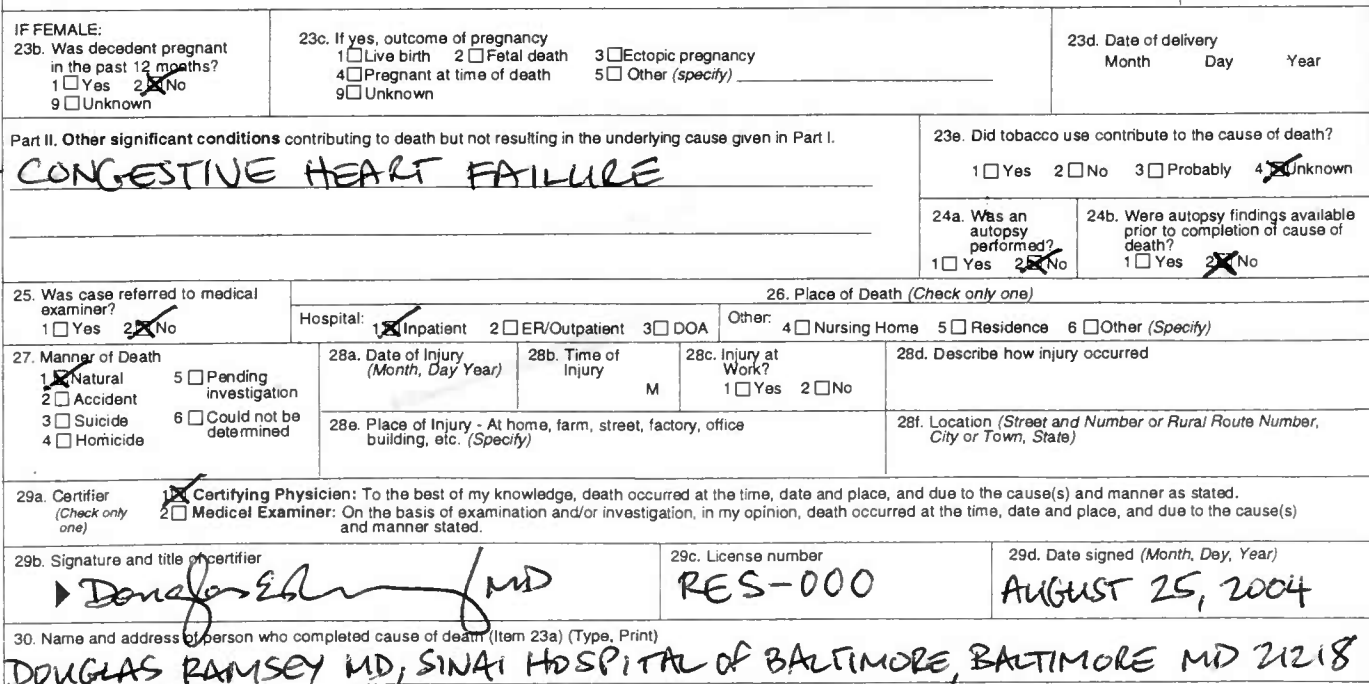 IF FEMALE:
23b. Was decedent pregnant
in the past 12 months?
1 ☐ Yes 2 ☒ No
9 ☐ Unknown
23c. If yes, outcome of pregnancy
1 ☐ Live birth 2 ☐ Fetal death 3 ☐ Ectopic pregnancy
4 ☐ Pregnant at time of death 5 ☐ Other (specify)
9 ☐ Unknown
23d. Date of delivery
Month Day Year
Part II. Other significant conditions contributing to death but not resulting in the underlying cause given in Part I.
CONGESTIVE HEART FAILURE
23e. Did tobacco use contribute to the cause of death?
1 ☐ Yes 2 ☐ No 3 ☐ Probably 4 ☒ Unknown
24a. Was an
autopsy
performed?
1 ☐ Yes 2 ☒ No
24b. Were autopsy findings available
prior to completion of cause of
death?
1 ☐ Yes 2 ☒ No
25. Was case referred to medical
examiner?
1 ☐ Yes 2 ☒ No
26. Place of Death (Check only one)
Hospital: 1 ☒ Inpatient 2 ☐ ER/Outpatient 3 ☐ DOA Other: 4 ☐ Nursing Home 5 ☐ Residence 6 ☐ Other (Specify)
27. Manner of Death
1 ☒ Natural 5 ☐ Pending
investigation
2 ☐ Accident
3 ☐ Suicide 6 ☐ Could not be
determined
4 ☐ Homicide
28a. Date of Injury
(Month, Day Year)
28b. Time of
Injury
M
28c. Injury at
Work?
1 ☐ Yes 2 ☐ No
28d. Describe how injury occurred
28e. Place of Injury - At home, farm, street, factory, office
building, etc. (Specify)
28f. Location (Street and Number or Rural Route Number,
City or Town, State)
29a. Certifier
(Check only
one)
1 ☒ Certifying Physician: To the best of my knowledge, death occurred at the time, date and place, and due to the cause(s) and manner as stated.
2 ☐ Medical Examiner: On the basis of examination and/or investigation, in my opinion, death occurred at the time, date and place, and due to the cause(s)
and manner stated.
29b. Signature and title of certifier
Douglas MD
29c. License number
RES-000
29d. Date signed (Month, Day, Year)
AUGUST 25, 2004
30. Name and address of person who completed cause of death (Item 23a) (Type, Print)
DOUGLAS RAMSEY MD, SINAI HOSPITAL OF BALTIMORE, BALTIMORE MD 21218